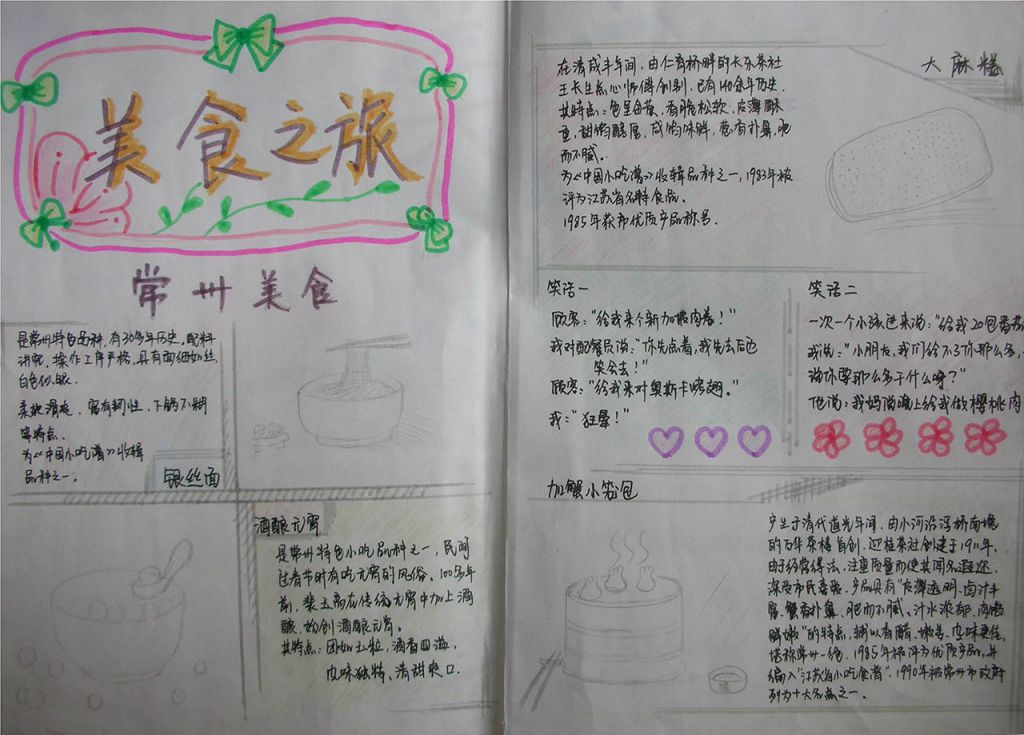 美食之旅
常州美食
是常州特色面种,有30多年历史,配料
讲究,操作工序严格,具有面细如丝
白色似银.
柔软滑爽、富有韧性、下锅不糊
等特点.
为《中国小吃谱》收辑
品种之一。
银丝面
酒酿元宵
是常州特色小吃品种之一,民间
过春节时有吃元宵的风俗。100多年
前,裴五而在传统元宵中加上酒
酿,始创酒酿元宵。
其特点:团如玉粒,酒香四溢,
风味独特、清甜爽口.
大麻糕
在清咸丰年间,由仁育桥畔的长乐茶社
王长生点心师傅创制,已有140余年历史.
其特点:色呈金黄,香脆松软、皮薄酥
重,甜的醇厚,咸的味鲜,葱香扑鼻,肥
而不腻。
为《中国小吃谱》收辑品种之一,1983年被
评为江苏省名特食品.
1985年获市优质产品称号.
笑话一
顾客:“给我来个新加坡肉卷!”
我对配餐员说:“你先点着,我先去后边
笑会去!”
顾客:“给我来对奥斯卡烤翅。”
我:“狂晕!”
笑话二
一次一个小孩进来说:“给我20包番茄
我说:“小朋友,我们给不了你那么多,
说你要那么多干什么呀?”
他说:我妈说晚上给我做樱桃肉
加蟹小笼包
产生于清代道光年间,由小河沿浮桥南堍
的万华茶楼首创.迎桂茶社创建于1911年,
由于经营得法,注重质量而使其闻名遐迩.
深受市民喜爱。产品具有“皮薄透明、卤汁丰
富、蟹香扑鼻、肥而不腻、汁水浓郁、肉嫩
鲜嫩”的特点,辅以香醋、嫩姜、风味更佳,
堪称常州一绝.1985年被评为优质产品,并
编入“江苏省小吃食谱”.1990年被常州市政府
列为十大名点之一.